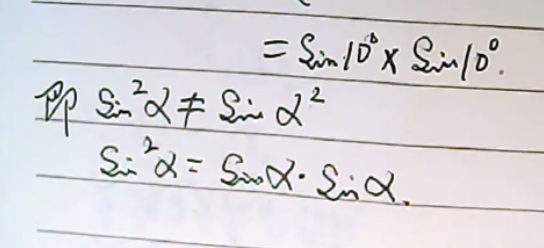 = Sin10° × Sin10°.
即 Sin²α ≠ Sin α²
Sin²α = Sinα · Sinα.